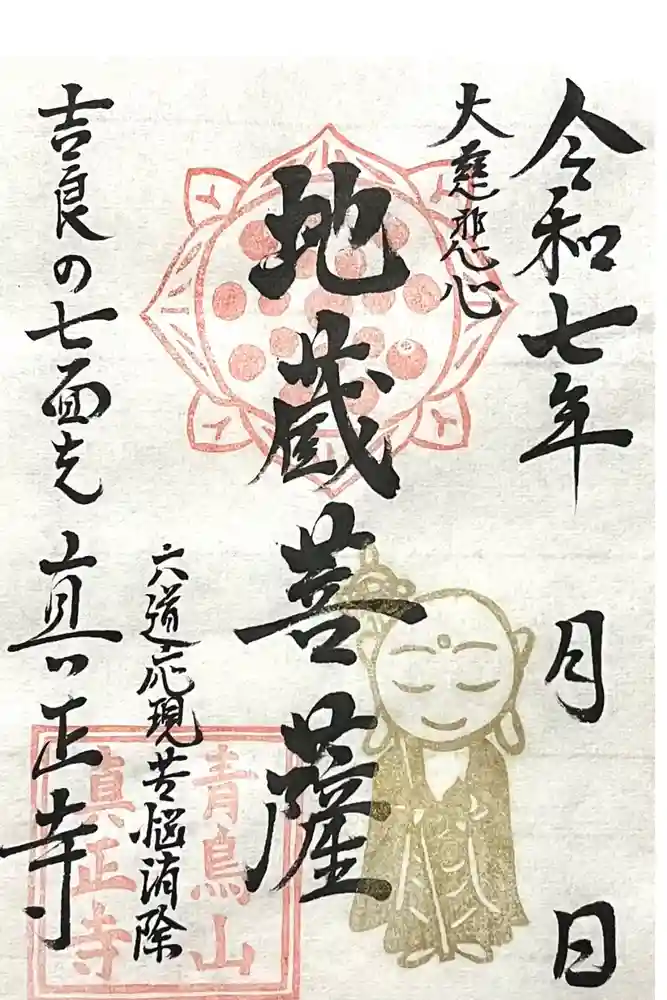 令和七年 月 日
大慈悲心
地蔵菩薩
六道応現苦悩消除
吉良の七面さん 真正寺
青鳥山
眞正寺